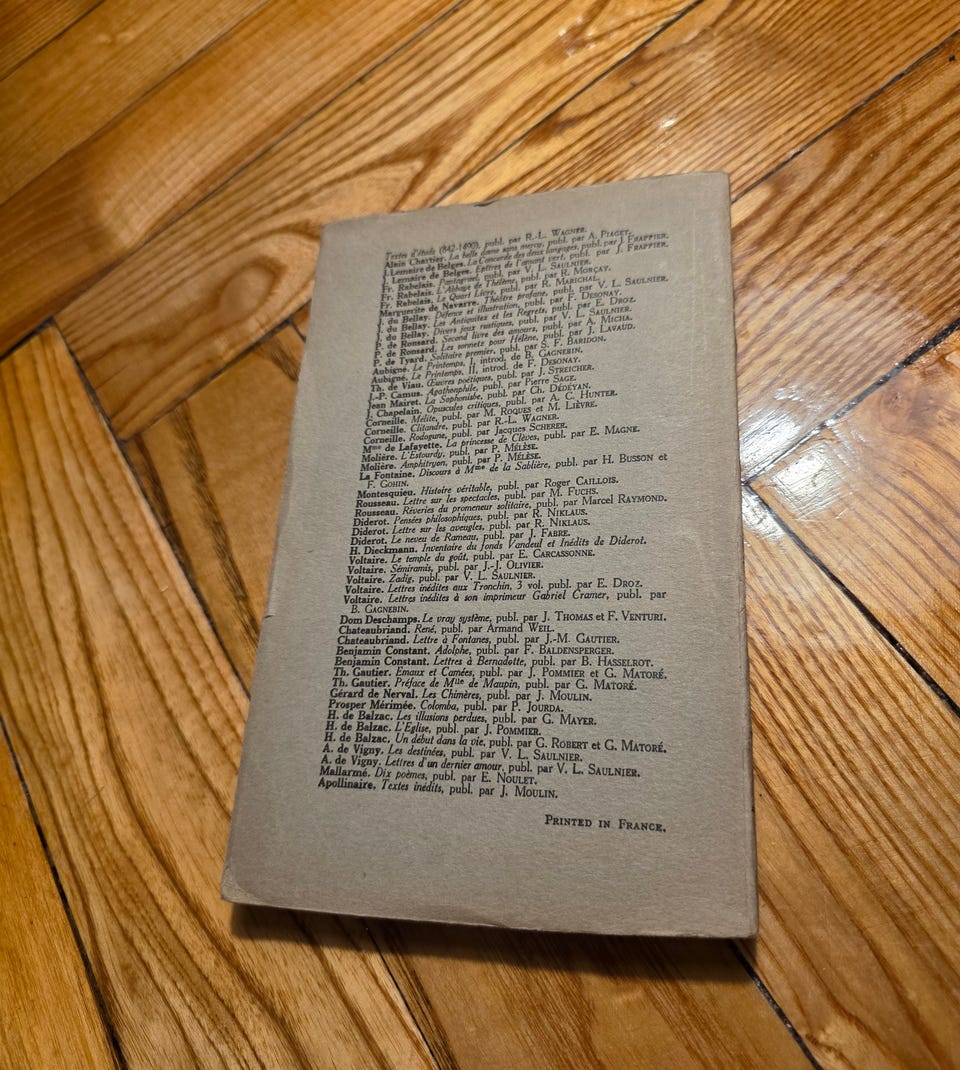 Textes d'étude (842-1490), publ. par R.-L. WAGNER.
Alain Chartier. La belle dame sans mercy, publ. par A. PIAGET.
J. Lemaire de Belges. La Concorde des deux langages, publ. par J. FRAPPIER.
J. Lemaire de Belges. Epîtres de l'amant vert, publ. par J. FRAPPIER.
Fr. Rabelais. Pantagruel, publ. par V. L. SAULNIER.
Fr. Rabelais. L'Abbaye de Thélème, publ. par R. MORÇAY.
Fr. Rabelais. Le Quart Livre, publ. par R. MARICHAL.
Marguerite de Navarre. Théâtre profane, publ. par V. L. SAULNIER.
J. du Bellay. Défence et illustration, publ. par F. DESONAY.
J. du Bellay. Les Antiquitez et les Regrets, publ. par E. DROZ.
J. du Bellay. Divers jeux rustiques, publ. par V. L. SAULNIER.
P. de Ronsard. Second livre des amours, publ. par A. MICHA.
P. de Ronsard. Les sonnetz pour Hélène, publ. par J. LAVAUD.
P. de Tyard. Solitaire premier, publ. par S. F. BARIDON.
Aubigné. Le Printemps, I, introd. de B. GAGNEBIN.
Aubigné. Le Printemps, II, introd. de F. DESONAY.
Th. de Viau. Œuvres poétiques, publ. par J. STREICHER.
J.-P. Camus. Agathonphile, publ. par Pierre SAGE.
Jean Mairet. La Sophonisbe, publ. par Ch. DÉDÉYAN.
J. Chapelain. Opuscules critiques, publ. par A. C. HUNTER.
Corneille. Mélite, publ. par M. ROQUES et M. LIÈVRE.
Corneille. Clitandre, publ. par R.-L. WAGNER.
Corneille. Rodogune, publ. par Jacques SCHERER.
Mme de Lafayette. La princesse de Clèves, publ. par E. MAGNE.
Molière. L'Estourdy, publ. par P. MÉLÈSE.
Molière. Amphitryon, publ. par P. MÉLÈSE.
La Fontaine. Discours à Mme de la Sablière, publ. par H. BUSSON et
F. GOHIN.
Montesquieu. Histoire véritable, publ. par Roger CAILLOIS.
Rousseau. Lettre sur les spectacles, publ. par M. FUCHS.
Rousseau. Rêveries du promeneur solitaire, publ. par Marcel RAYMOND.
Diderot. Pensées philosophiques, publ. par R. NIKLAUS.
Diderot. Lettre sur les aveugles, publ. par R. NIKLAUS.
Diderot. Le neveu de Rameau, publ. par J. FABRE.
H. Dieckmann. Inventaire du fonds Vandeul et Inédits de Diderot.
Voltaire. Le temple du goût, publ. par E. CARCASSONNE.
Voltaire. Sémiramis, publ. par J.-J. OLIVIER.
Voltaire. Zadig, publ. par V. L. SAULNIER.
Voltaire. Lettres inédites aux Tronchin, 3 vol. publ. par E. DROZ.
Voltaire. Lettres inédites à son imprimeur Gabriel Cramer, publ. par
B. GAGNEBIN.
Dom Deschamps. Le vray système, publ. par J. THOMAS et F. VENTURI.
Chateaubriand. René, publ. par Armand WEIL.
Chateaubriand. Lettre à Fontanes, publ. par J.-M. GAUTIER.
Benjamin Constant. Adolphe, publ. par F. BALDENSPERGER.
Benjamin Constant. Lettres à Bernadotte, publ. par B. HASSELROT.
Th. Gautier. Emaux et Camées, publ. par J. POMMIER et G. MATORÉ.
Th. Gautier. Préface de Mlle de Maupin, publ. par G. MATORÉ.
Gérard de Nerval. Les Chimères, publ. par J. MOULIN.
Prosper Mérimée. Colomba, publ. par P. JOURDA.
H. de Balzac. Les illusions perdues, publ. par G. MAYER.
H. de Balzac. L'Eglise, publ. par J. POMMIER.
H. de Balzac. Un début dans la vie, publ. par G. ROBERT et G. MATORÉ.
A. de Vigny. Les destinées, publ. par V. L. SAULNIER.
A. de Vigny. Lettres d'un dernier amour, publ. par V. L. SAULNIER.
Mallarmé. Dix poèmes, publ. par E. NOULET.
Apollinaire. Textes inédits, publ. par J. MOULIN.
PRINTED IN FRANCE.